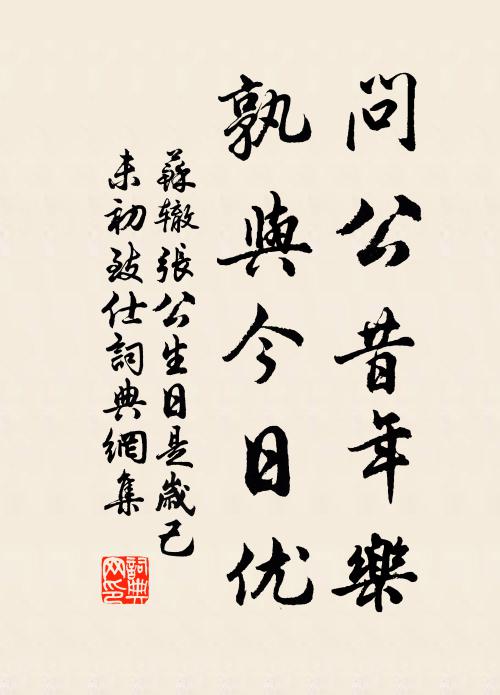 問公昔年樂
孰與今日优
蘇辙張公生日是歲己
未初致仕詞典網集
詞典
网印